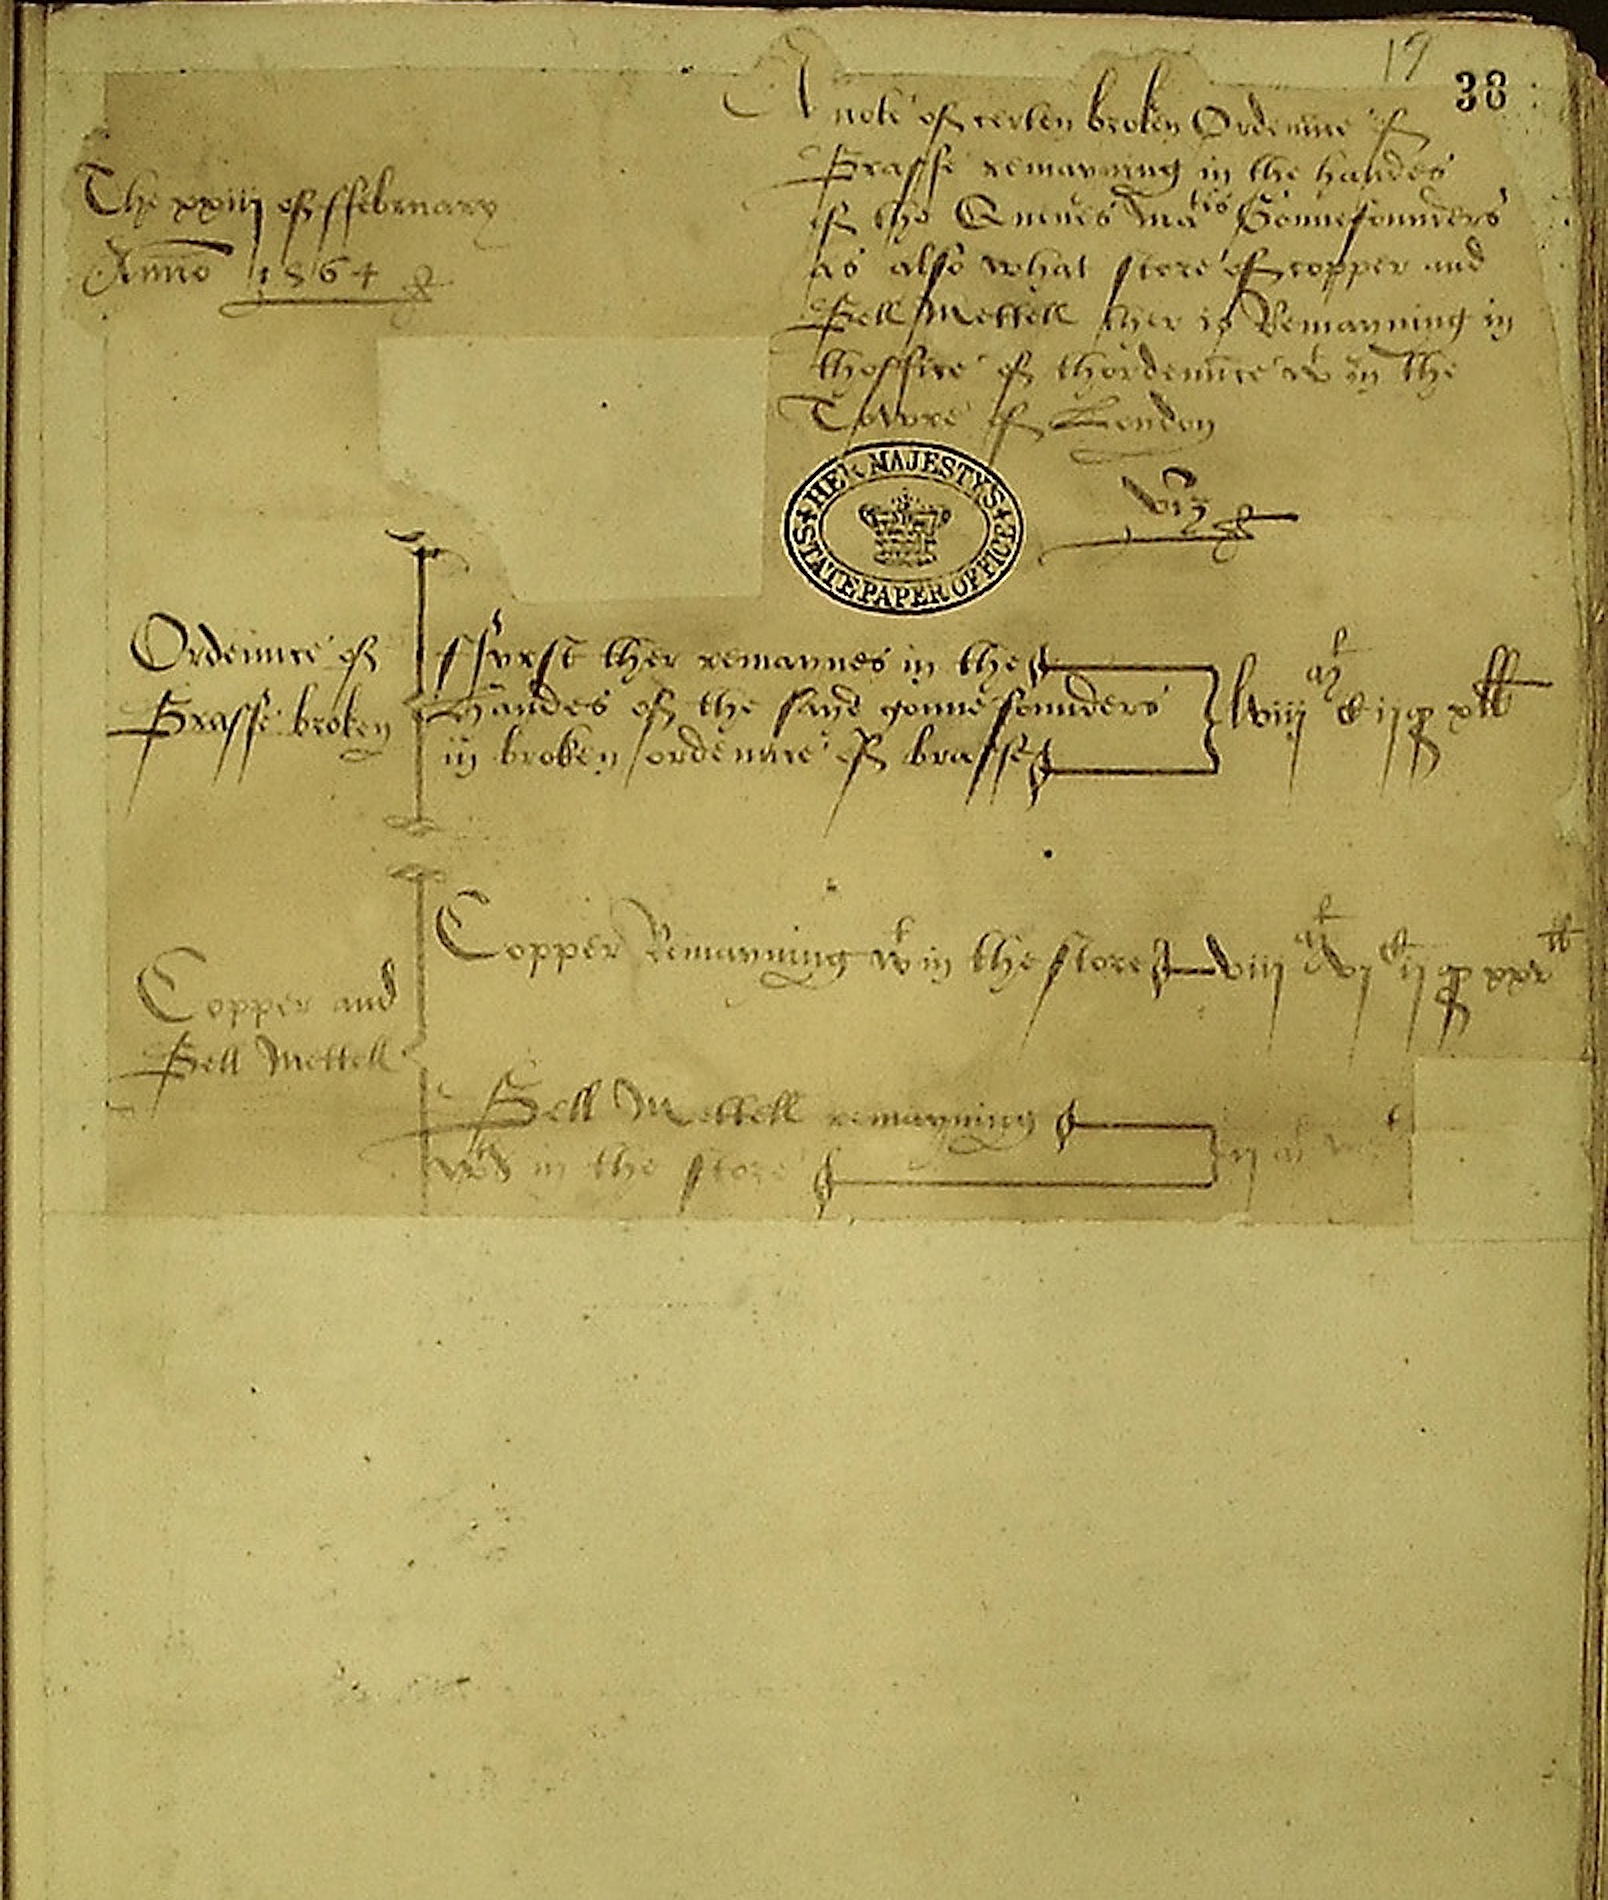 19
38
The xxiij of ffebruary
Anno 1564
A note of certen broken Ordennce of
Brasse remayning in the handes
of the Quenes Matis Gonnefounders
as also what store of copper and
Bell Mettell ther is Remayning in
thoffice of thordennce wt in the
Towre of London
viz
HER MAJESTY'S
STATE PAPER OFFICE
Ordennce of
Brasse broken
ffyrst ther remaynes in the
handes of the sayd gonnefounders
in broken ordennce of brasse
lviij
Copper and
Bell Mettell
Copper Remayning wt in the store viij
Bell Mettell remayning
in the store